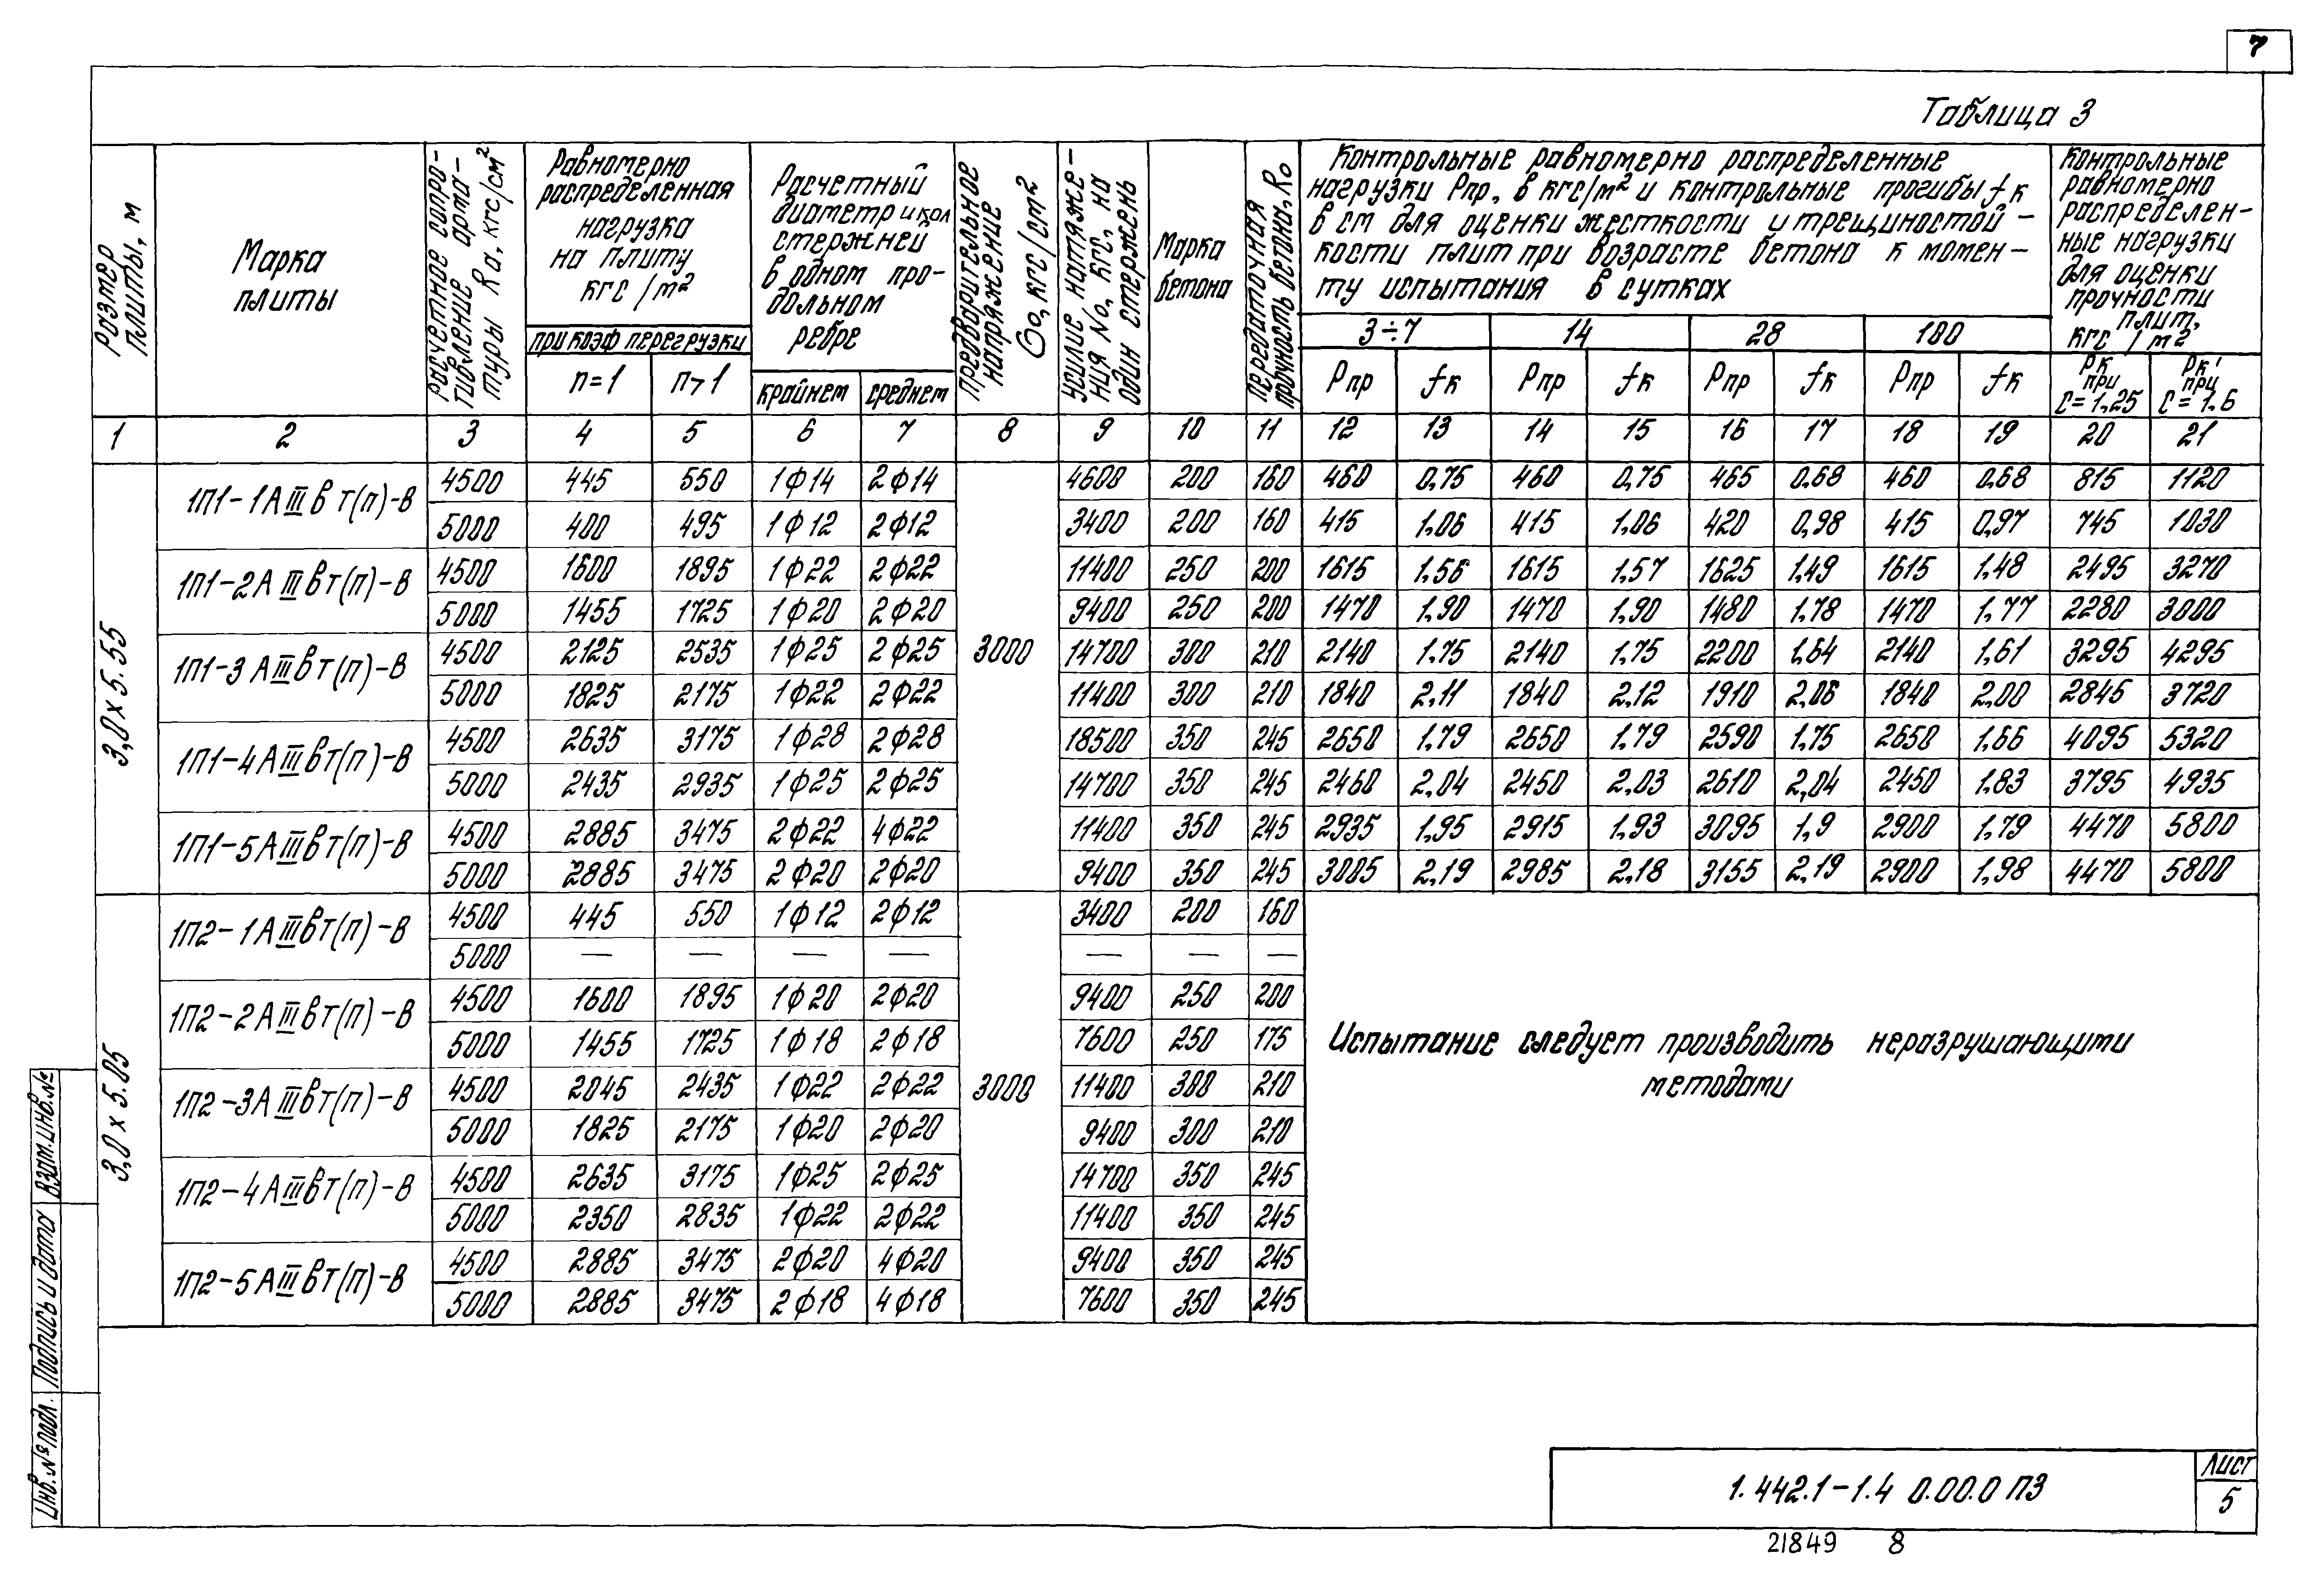 7
Таблица 3
Размер плиты, м
Марка плиты
Расчетное сопро-тивление арма-туры Rа, кгс/см²
Равномерно распределенная нагрузка на плиту кгс/м²
при коэф перегрузки
n=1 n>1
Расчетный диаметр и кол стержней в одном про-дольном ребре
крайнем среднем
Предварительное напряжение бо, кгс/см2
Усилие натяже-ния No, кгс, на один стержень
Марка бетона
Передаточная прочность бетона, Ro
Контрольные равномерно распределенные
нагрузки Рпр, в кгс/м² и контрольные прогибы fк
в см для оценки жесткости и трещиностой-
кости плит при возрасте бетона к момен-
ту испытания в сутках
3÷7 14 28 180
Рпр fк Рпр fк Рпр fк Рпр fк
Контрольные равномерно распределен-ные нагрузки для оценки прочности плит, кгс/м2
Рк при С=1,25 Рк' при С=1,6
1 2 3 4 5 6 7 8 9 10 11 12 13 14 15 16 17 18 19 20 21
3,0х5.55
3000
1П1-1АIIIвт(п)-В 4500 445 550 1ф14 2ф14 4600 200 160 460 0,75 460 0,75 465 0.68 460 0.68 815 1120
5000 400 495 1ф12 2ф12 3400 200 160 415 1,06 415 1,06 420 0,98 415 0,97 745 1030
1П1-2АIIIвт(п)-В 4500 1600 1895 1ф22 2ф22 11400 250 200 1615 1.56 1615 1,57 1625 1.49 1615 1,48 2495 3270
5000 1455 1725 1ф20 2ф20 9400 250 200 1470 1.90 1470 1.90 1480 1.78 1470 1,77 2280 3000
1П1-3АIIIвт(п)-В 4500 2125 2535 1ф25 2ф25 14700 300 210 2140 1.75 2140 1.75 2200 1,64 2140 1,61 3295 4295
5000 1825 2175 1ф22 2ф22 11400 300 210 1840 2,11 1840 2,12 1910 2,06 1840 2,00 2845 3720
1П1-4АIIIвт(п)-В 4500 2635 3175 1ф28 2ф28 18500 350 245 2650 1.79 2650 1.79 2590 1,75 2650 1,66 4095 5320
5000 2435 2935 1ф25 2ф25 14700 350 245 2460 2,04 2450 2,03 2610 2,04 2450 1.83 3795 4935
1П1-5АIIIвт(п)-В 4500 2885 3475 2ф22 4ф22 11400 350 245 2935 1,95 2915 1.93 3095 1,9 2900 1,79 4470 5800
5000 2885 3475 2ф20 2ф20 9400 350 245 3005 2,19 2985 2,18 3155 2,19 2900 1,98 4470 5800
3,0х5.05
3000
1П2-1АIIIвт(п)-В 4500 445 550 1ф12 2ф12 3400 200 160
5000 — — — — — — —
1П2-2АIIIвт(п)-В 4500 1600 1895 1ф20 2ф20 9400 250 200
5000 1455 1725 1ф18 2ф18 7600 250 175
1П2-3АIIIвт(п)-В 4500 2045 2435 1ф22 2ф22 11400 300 210
5000 1825 2175 1ф20 2ф20 9400 300 210
1П2-4АIIIвт(п)-В 4500 2635 3175 1ф25 2ф25 14700 350 245
5000 2350 2835 1ф22 2ф22 11400 350 245
1П2-5АIIIвт(п)-В 4500 2885 3475 2ф20 4ф20 9400 350 245
5000 2885 3475 2ф18 4ф18 7600 350 245
Испытание следует производить неразрушающими
методами
Инв.№ подл. Подпись и дата Взам.инв.№
1.442.1-1.4 0.00.0 ПЗ
Лист
5
21849 8